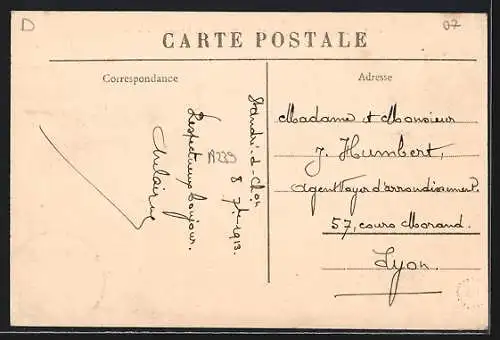 D
07
CARTE POSTALE
Correspondance
Adresse
St André-d-Chon
8 7bre 1913.
A239
Respectueux bonjour.
Madame et Monsieur
J. Humbert,
Agent Voyer d'arrondissement.
57, cours Morand.
Lyon.